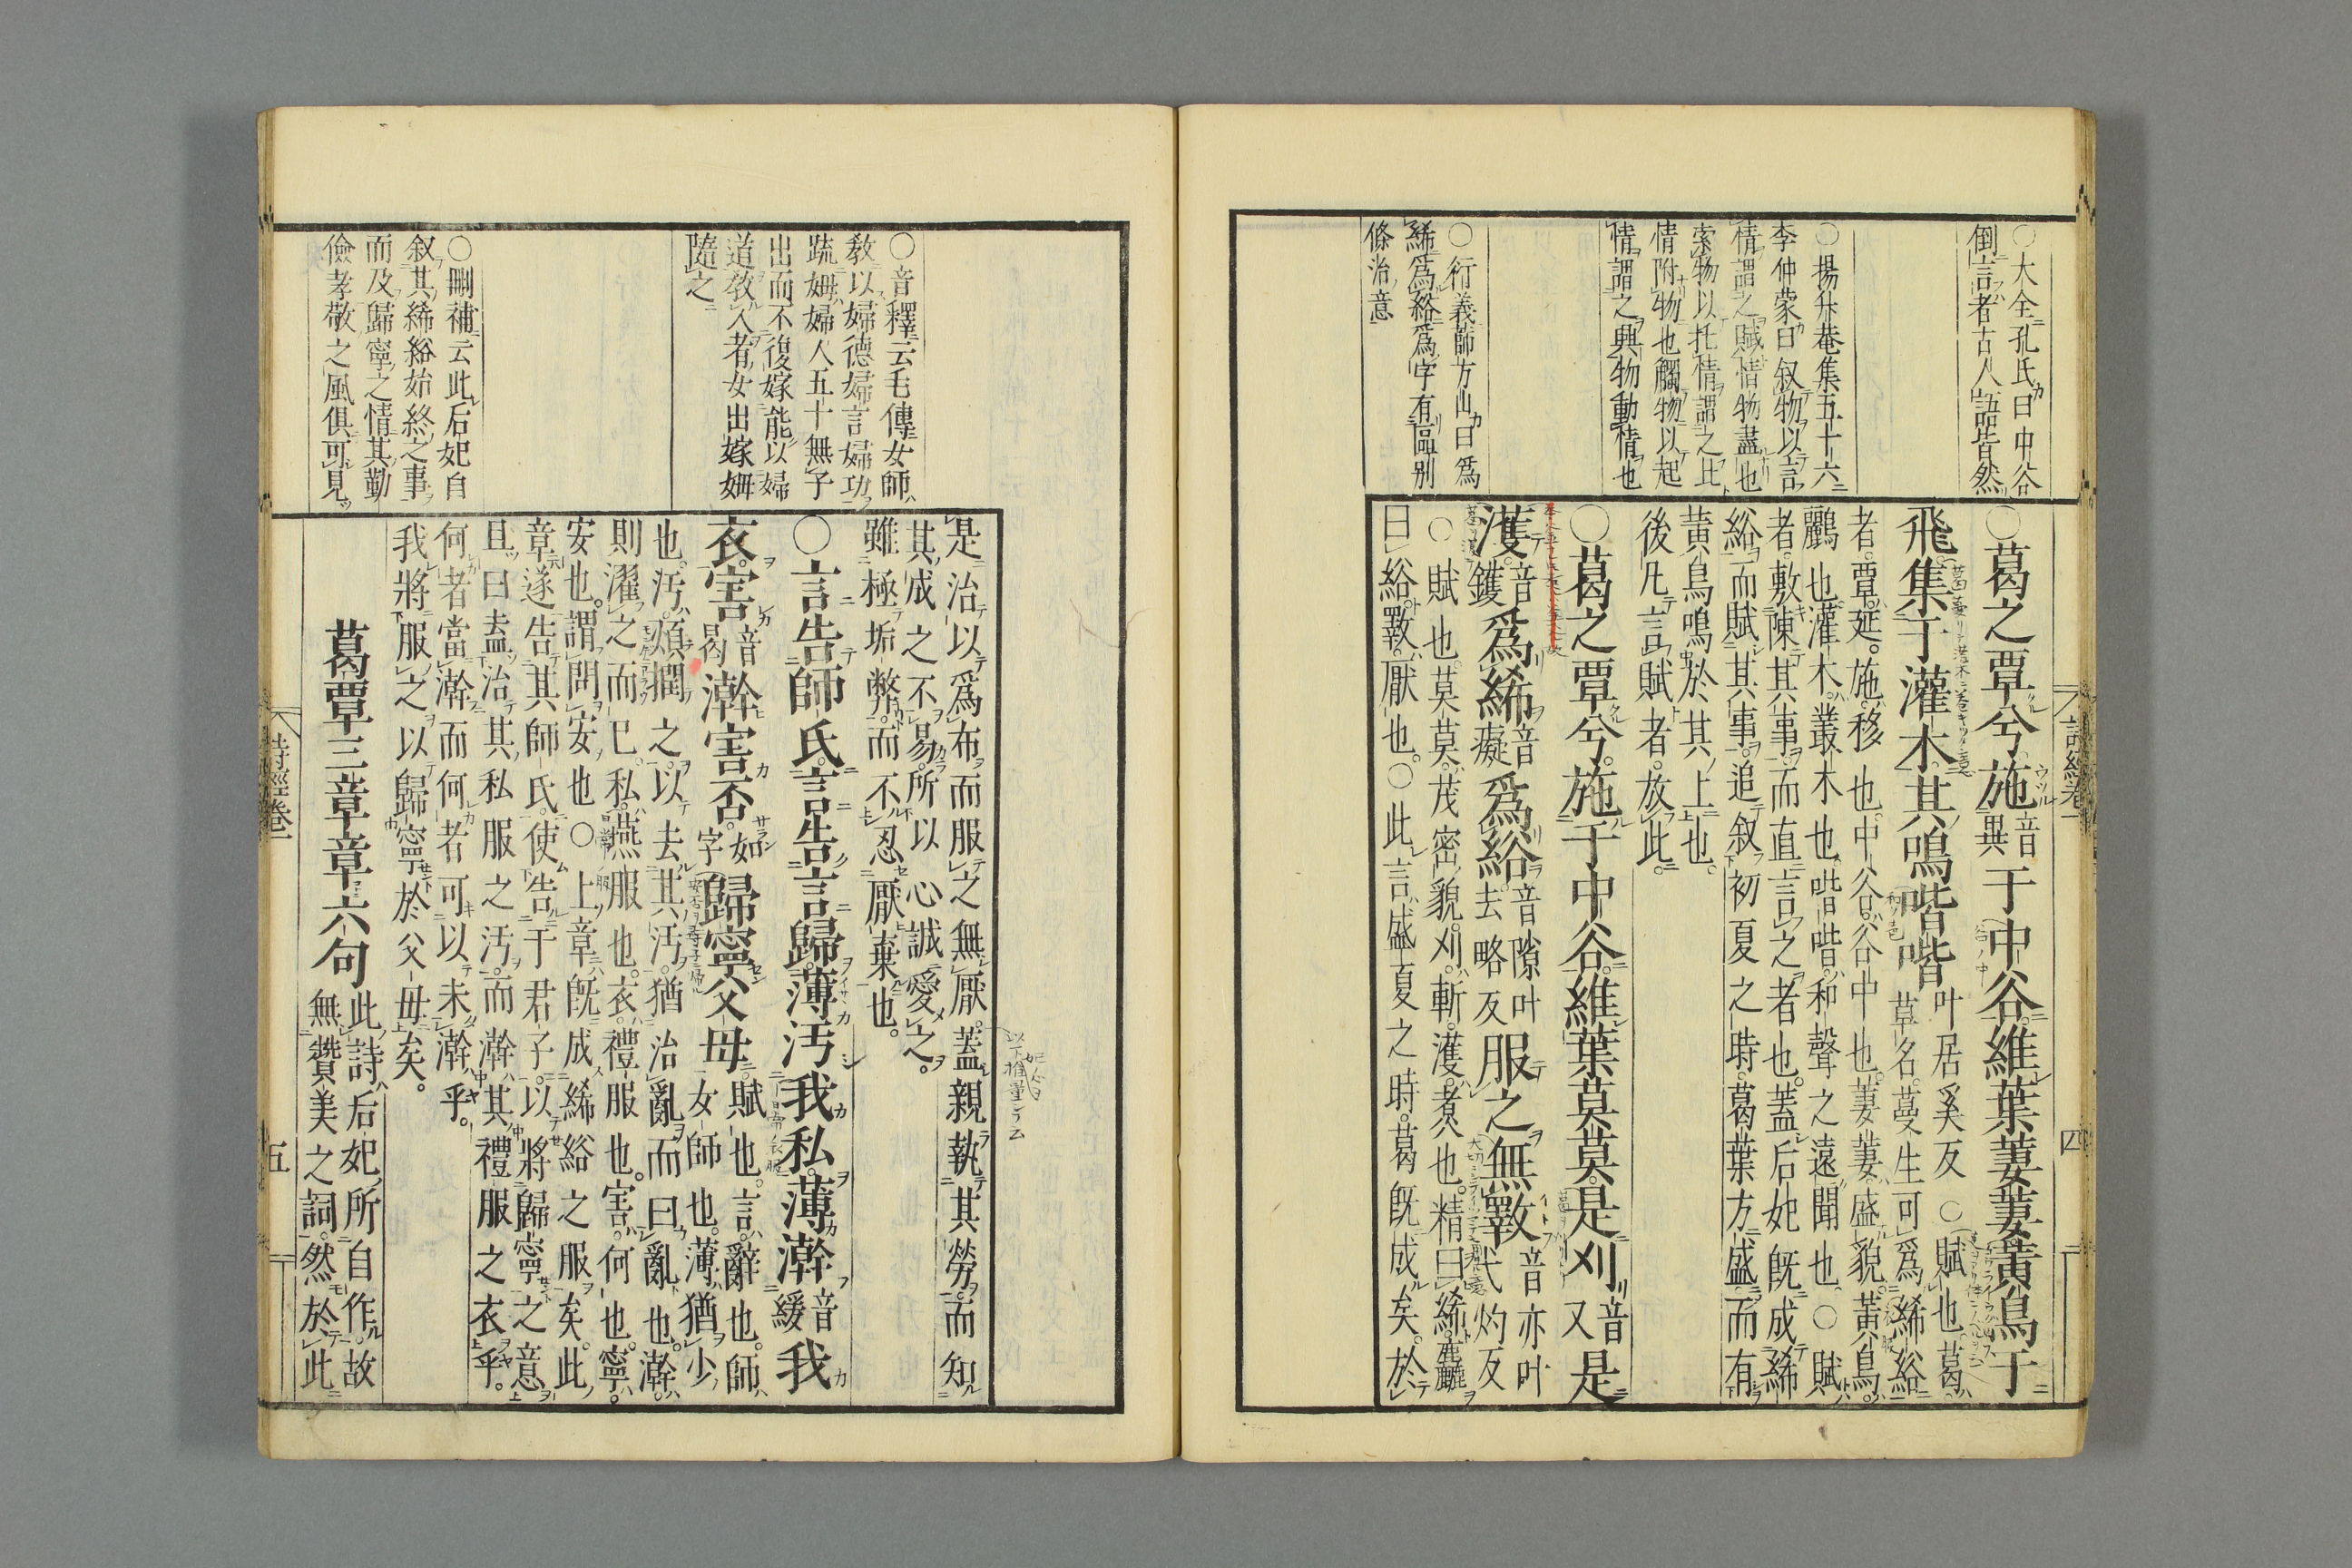 ○大全孔氏曰中谷
倒言者古人語皆然
○揚升菴集五十六
李仲蒙曰叙物以言
情謂之賦情物盡也
索物以托情謂之比
情附物也觸物以起
情謂之興物動情也
○衍義師方山曰爲
絺爲綌爲字有區別
條治意
詩經卷一
四
○葛之覃兮施音異于中谷維葉萋萋黄鳥于
飛集于灌木其鳴喈喈叶居奚反○賦也葛草名蔓生可爲絺綌
者覃延施移也中谷谷中也萋萋盛貌黄鳥
鸝也灌木叢木也喈喈和聲之遠聞也○賦
者敷陳其事而直言之者也蓋后妃既成絺
綌而賦其事追叙初夏之時葛葉方盛而有
黄鳥鳴於其上也
後凡言賦者放此
○葛之覃兮施于中谷維葉莫莫是刈音又是
濩音鑊爲絺音癡爲綌音隙叶去略反服之無斁音亦叶弋灼反
○賦也莫莫茂密貌刈斬濩煮也精曰絺麤
曰綌斁厭也○此言盛夏之時葛既成矣於
○音釋云毛傳女師
教以婦德婦言婦功
䟽姆婦人五十無子
出而不復嫁能以婦
道教人者女出嫁姆
隨之
○刪補云此后妃自
叙其絺綌始終之事
而及歸寧之情其勤
儉孝敬之風俱可見
是治以爲布而服之無厭蓋親執其勞而知
其成之不易所以心誠愛之
雖極垢弊而不忍厭棄也
○言告師氏言告言歸薄汚我私薄澣音緩我
衣害音曷澣害否如字歸寧父母賦也言辭也師女師也薄猶少
也汚煩撋之以去其汚猶治亂而曰亂也澣
則濯之而已私燕服也衣禮服也害何也寧
安也謂問安也○上章既成絺綌之服矣此
章遂告其師氏使告于君子以將歸寧之意
且曰盍治其私服之汚而澣其禮服之衣乎
何者當澣而何者可以未澣乎
我將服之以歸寧於父母矣
葛覃三章章六句此詩后妃所自作故無贊美之詞然於此
詩經卷一
五